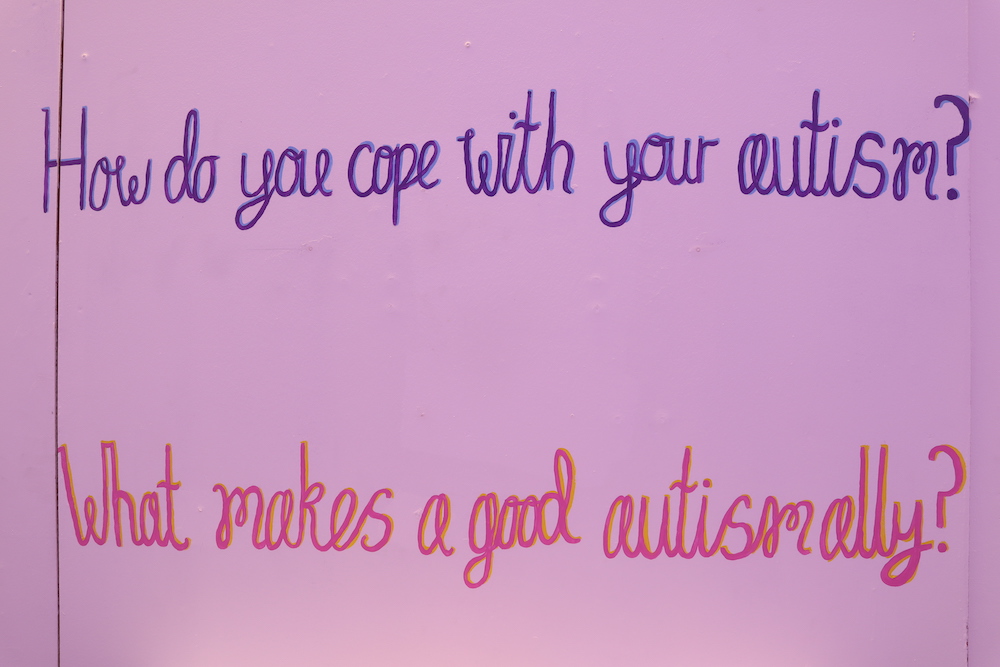 How do you cope with your autism?
What makes a good autism ally?